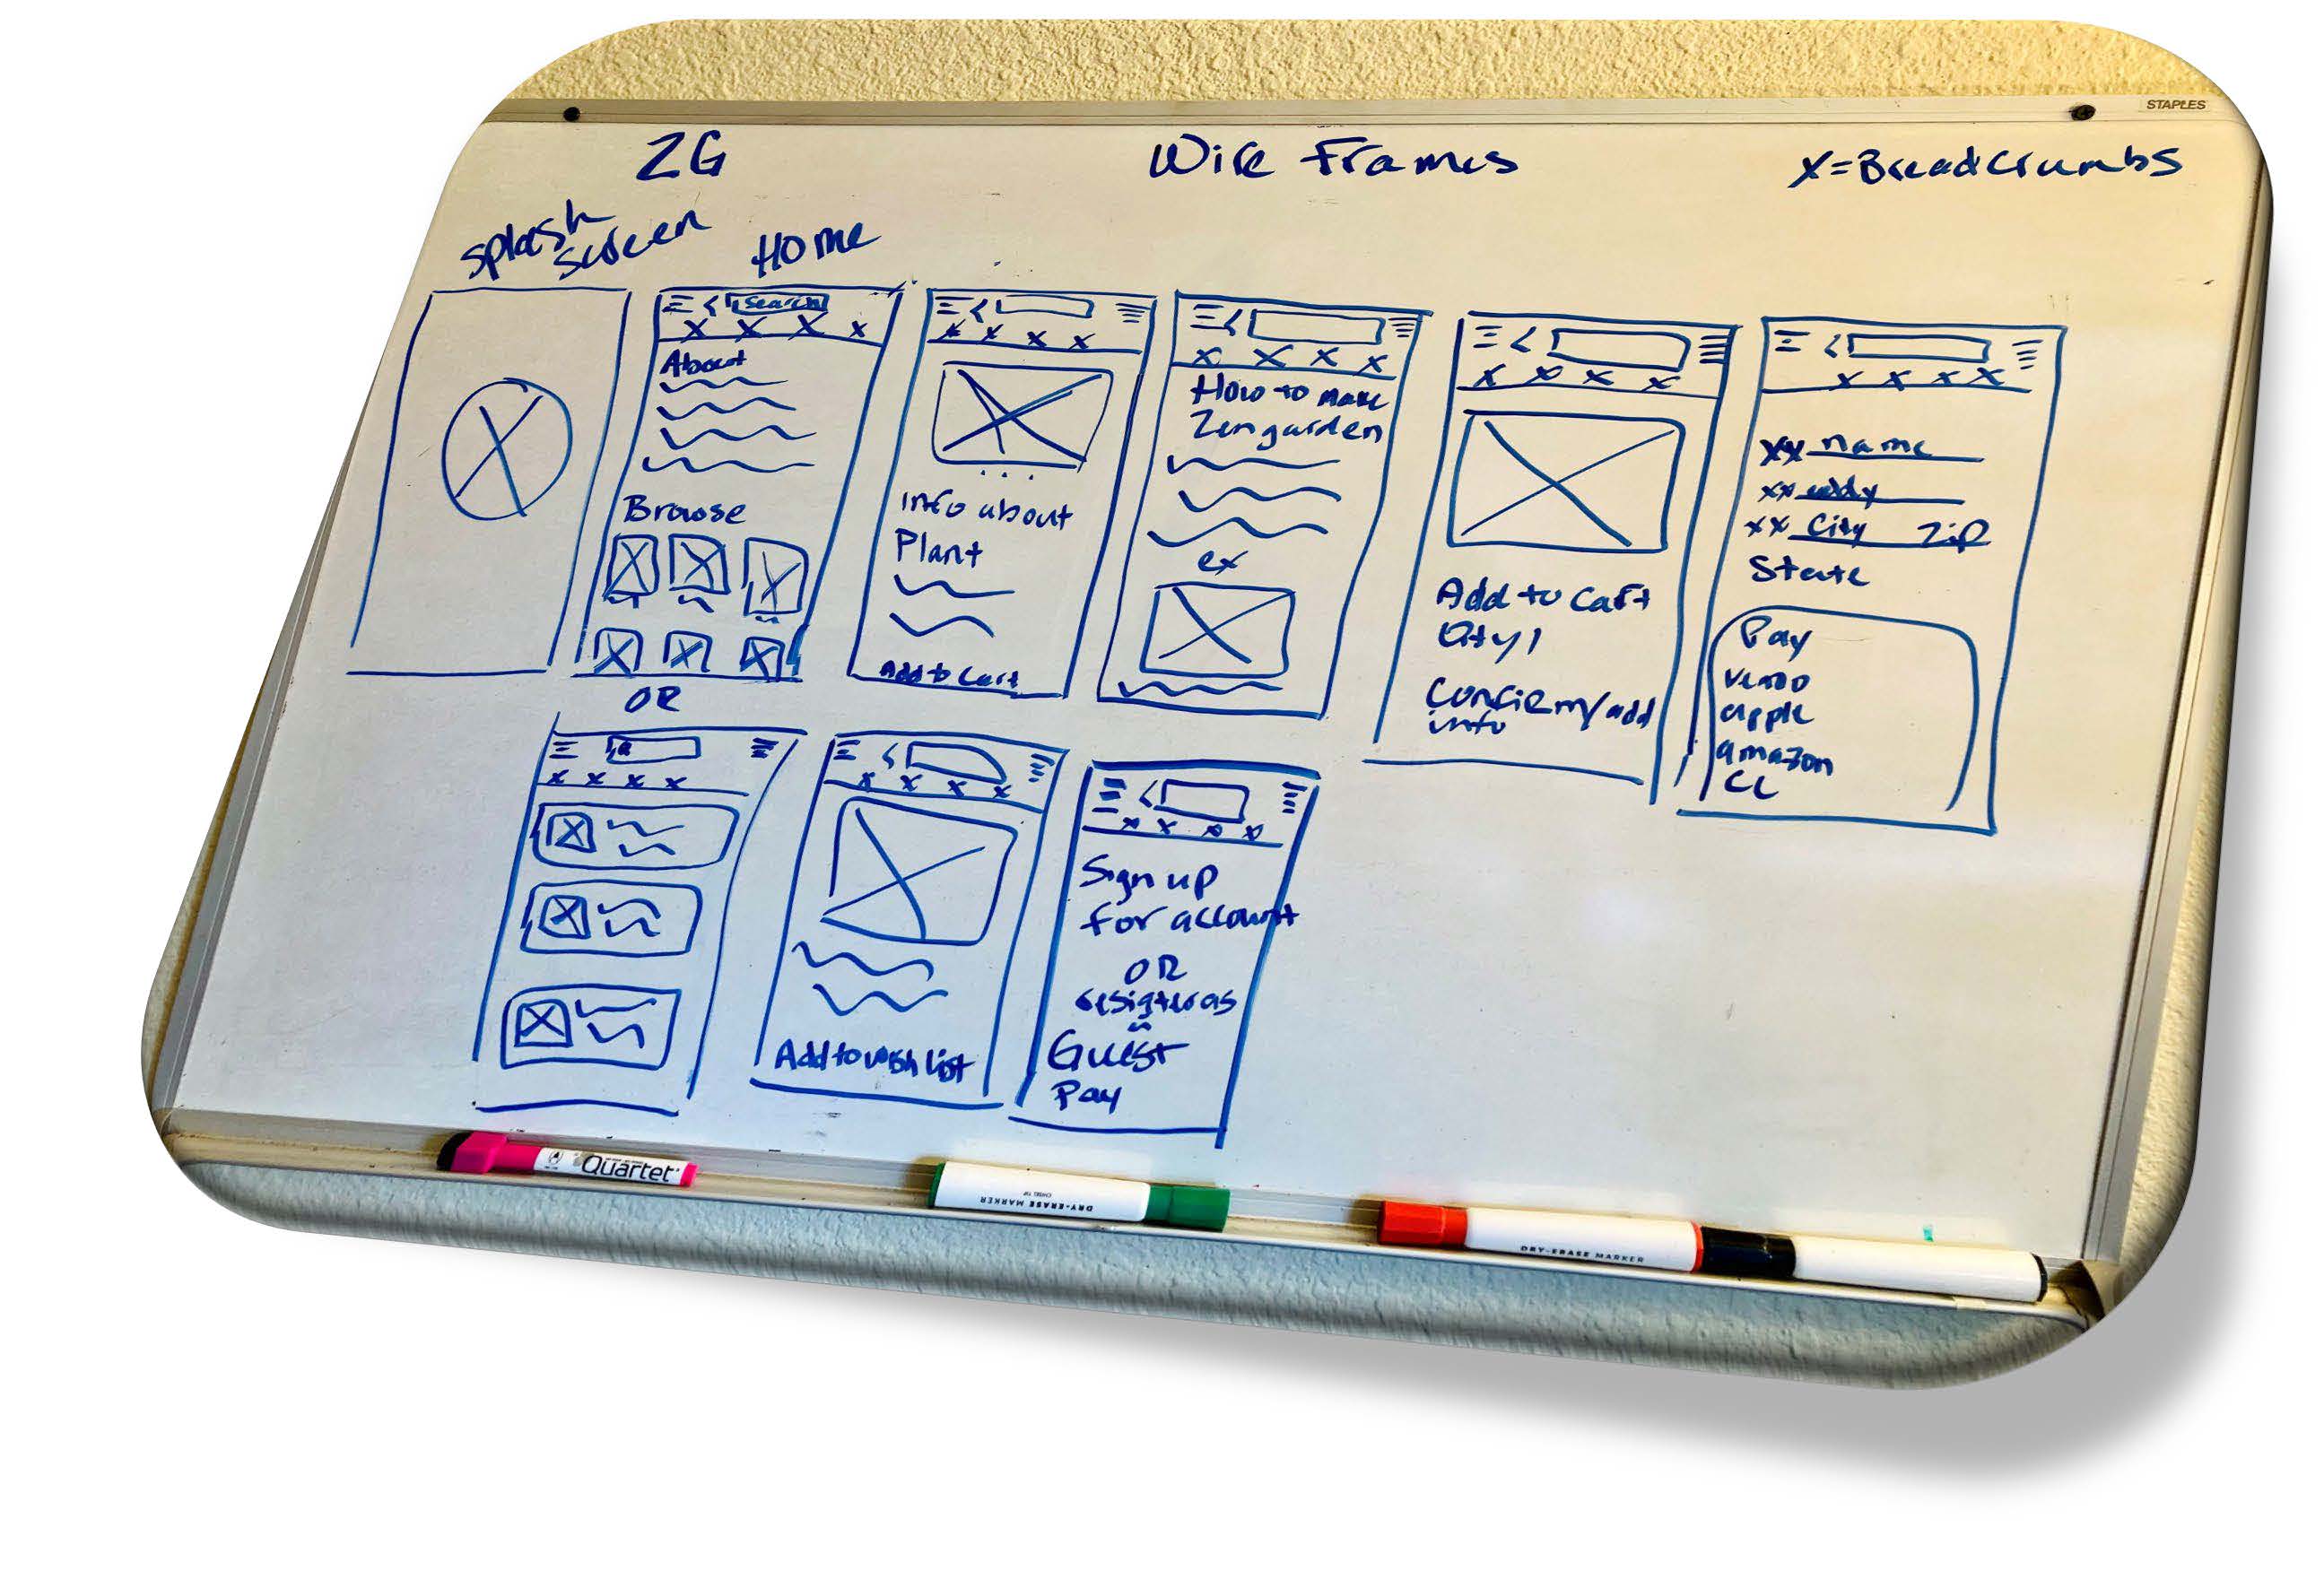 STAPLES
ZG
Wire Frames
X=Breadcrumbs
Splash
screen
Home
Search
About
Browse
OR
Info about
Plant
Add to cart
How to make
Zen garden
ex
Add to cart
Qty 1
Confirm/add
info
xx name
xx addy
xx City Zip
State
Pay
venmo
apple
amazon
CC
Add to wish list
Sign up
for account
OR
Guest
Pay
Quartet
DRY-ERASE MARKER
CHISEL TIP
DRY-ERASE MARKER